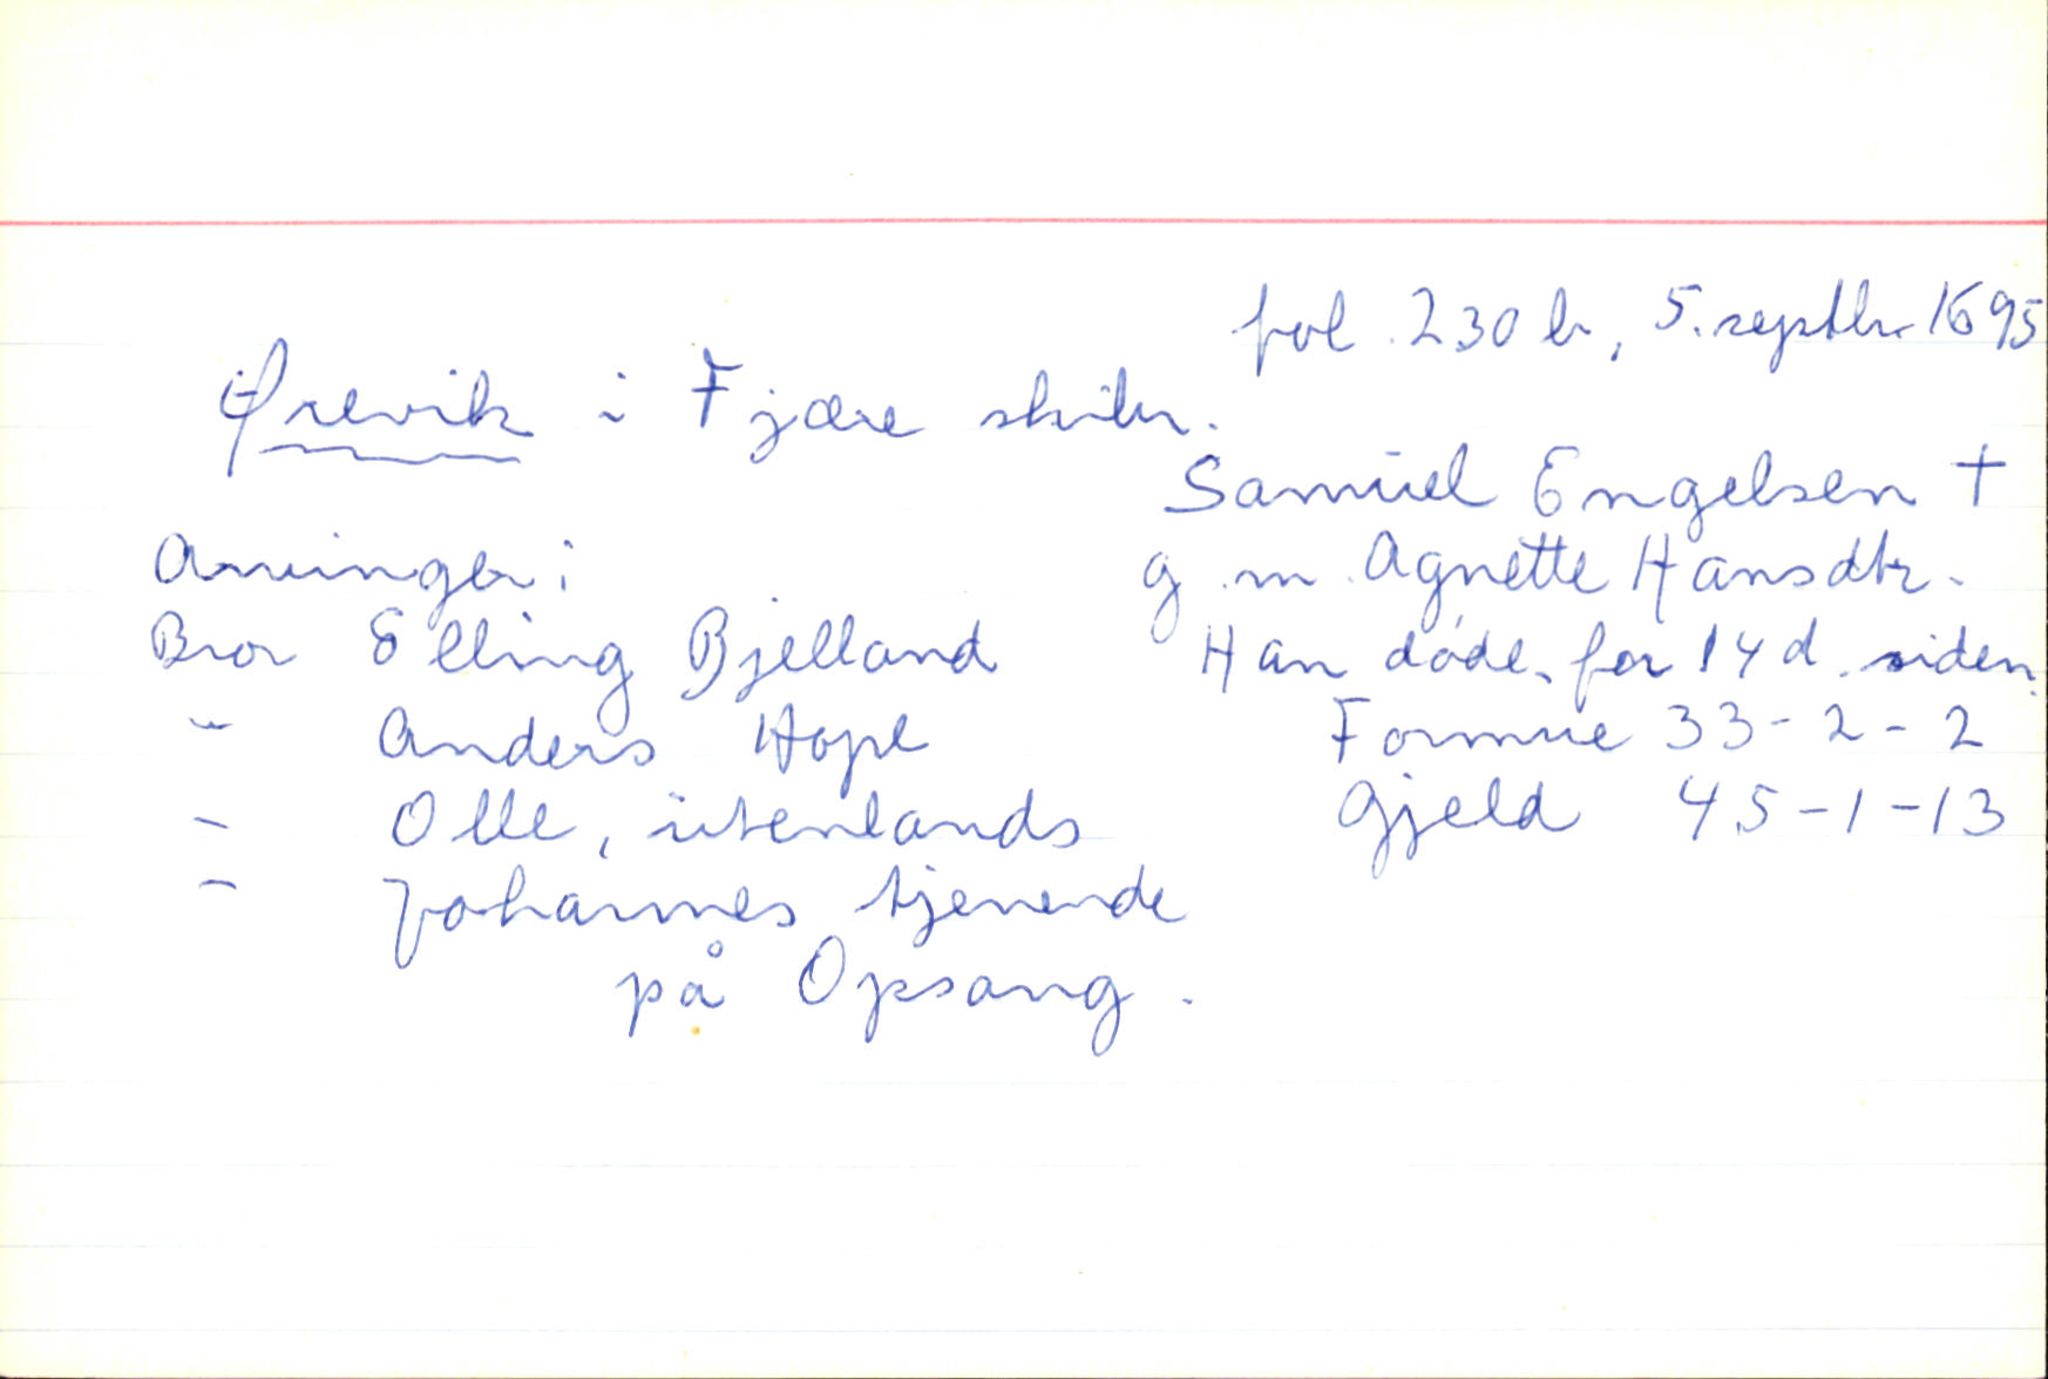 fol. 230 b, 5. septbr. 1695
Ørevik i Fjære skibr.
Samuel Engelsen †
g.m. Agnette Hansdtr.
Han døde for 14 d. siden.
Formue 33-2-2
Gjeld 45-1-13
Arvinger:
Bror Elling Bjelland
" Anders Hope
" Olle, utenlands
" Johannes tjenende
på Opsang.